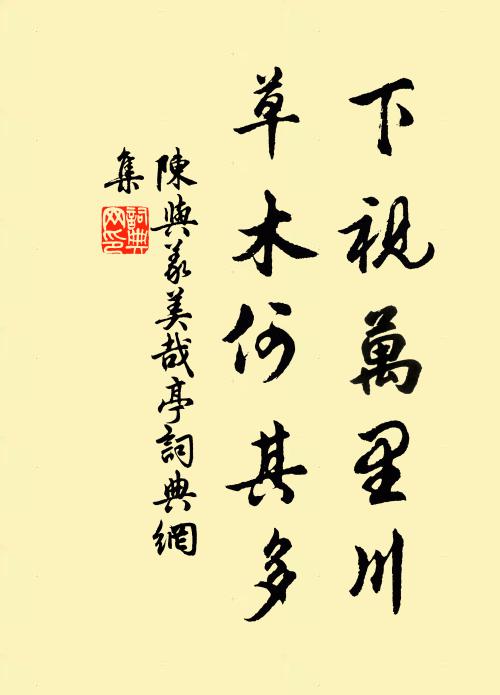 下視萬里川
草木何其多
陳與義美哉亭詞典網
集
詞典網印